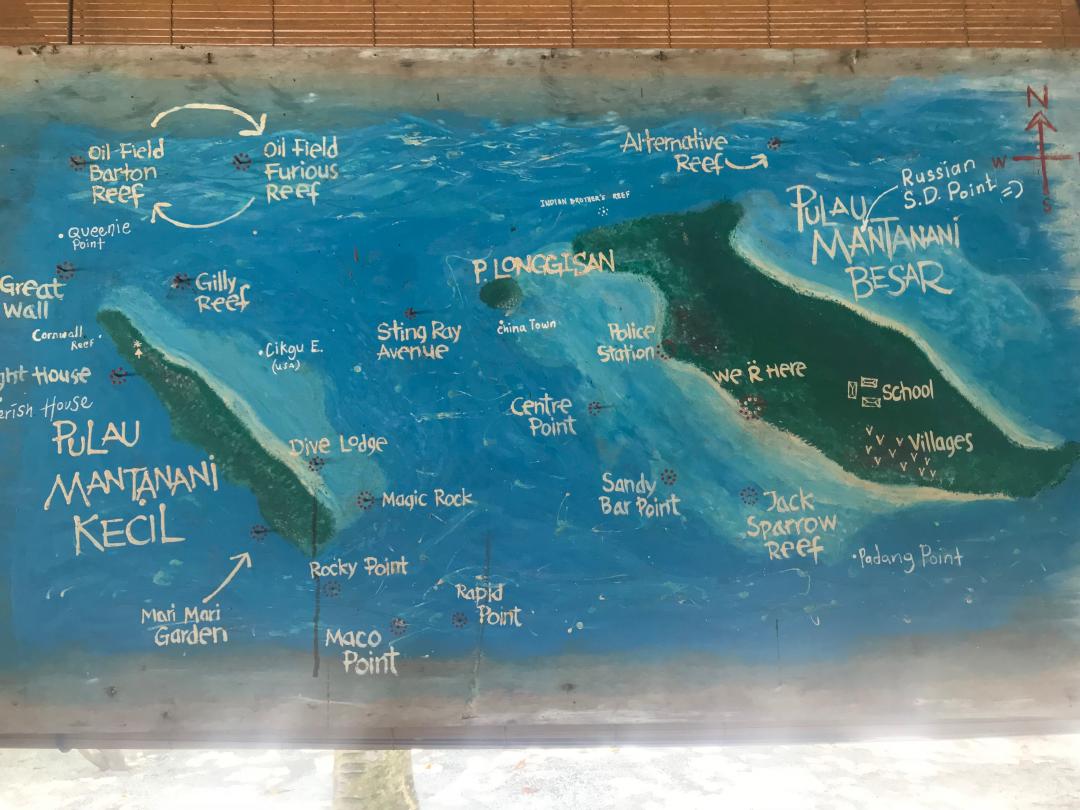 N
W
S
Oil Field
Barton
Reef
Oil Field
Furious
Reef
Alternative
Reef
Russian
S.D. Point
INDIAN BROTHER'S REEF
PULAU
MANTANANI
BESAR
Queenie
Point
Great
Wall
Gilly
Reef
P. LONGGISAN
China Town
Cornwall
Reef
Cikgu E.
(USA)
Sting Ray
Avenue
Police
Station
ght House
erish House
We R Here
School
Centre
Point
Villages
PULAU
MANTANANI
KECIL
Dive Lodge
Magic Rock
Sandy
Bar Point
Jack
Sparrow
Reef
Padang Point
Rocky Point
Mari Mari
Garden
Rapid
Point
Maco
Point